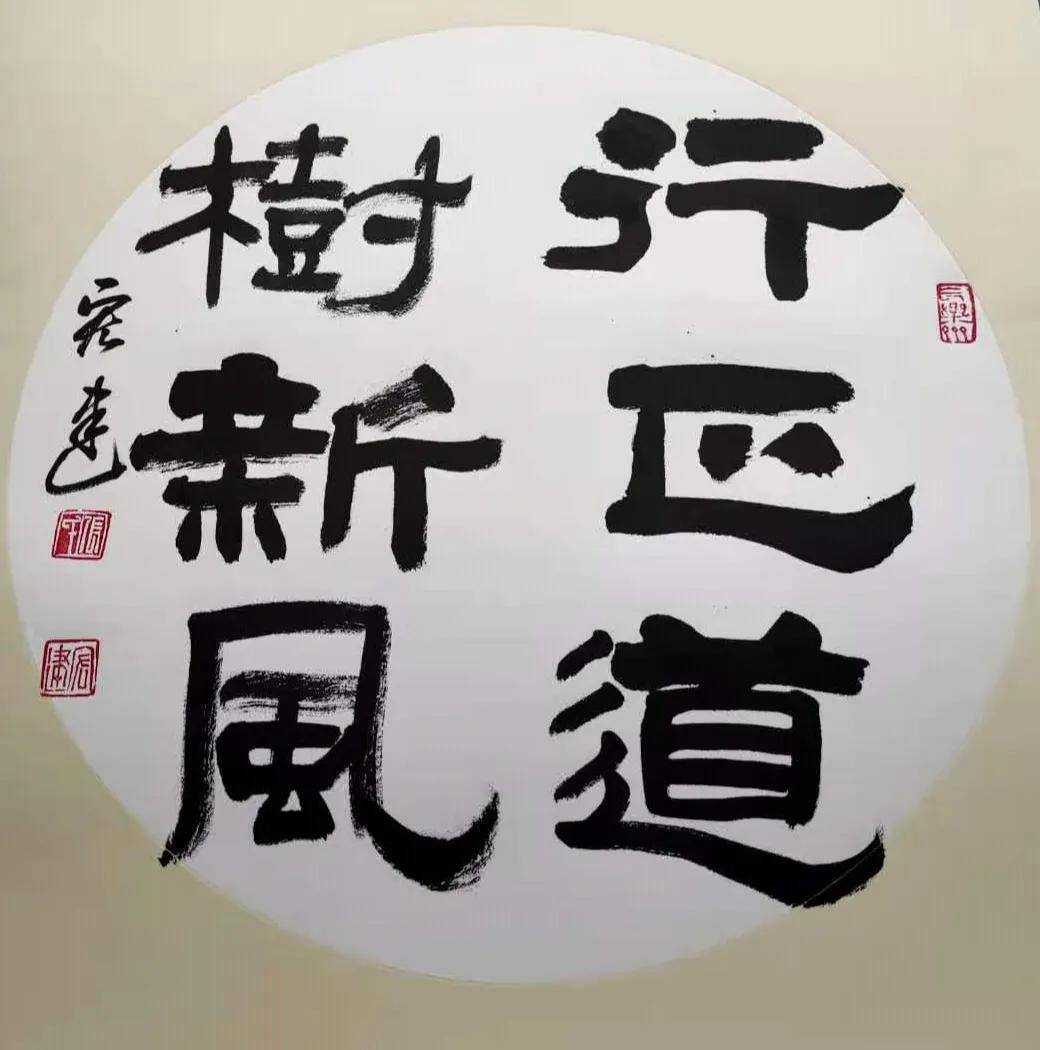 行正道
樹新風
宏建